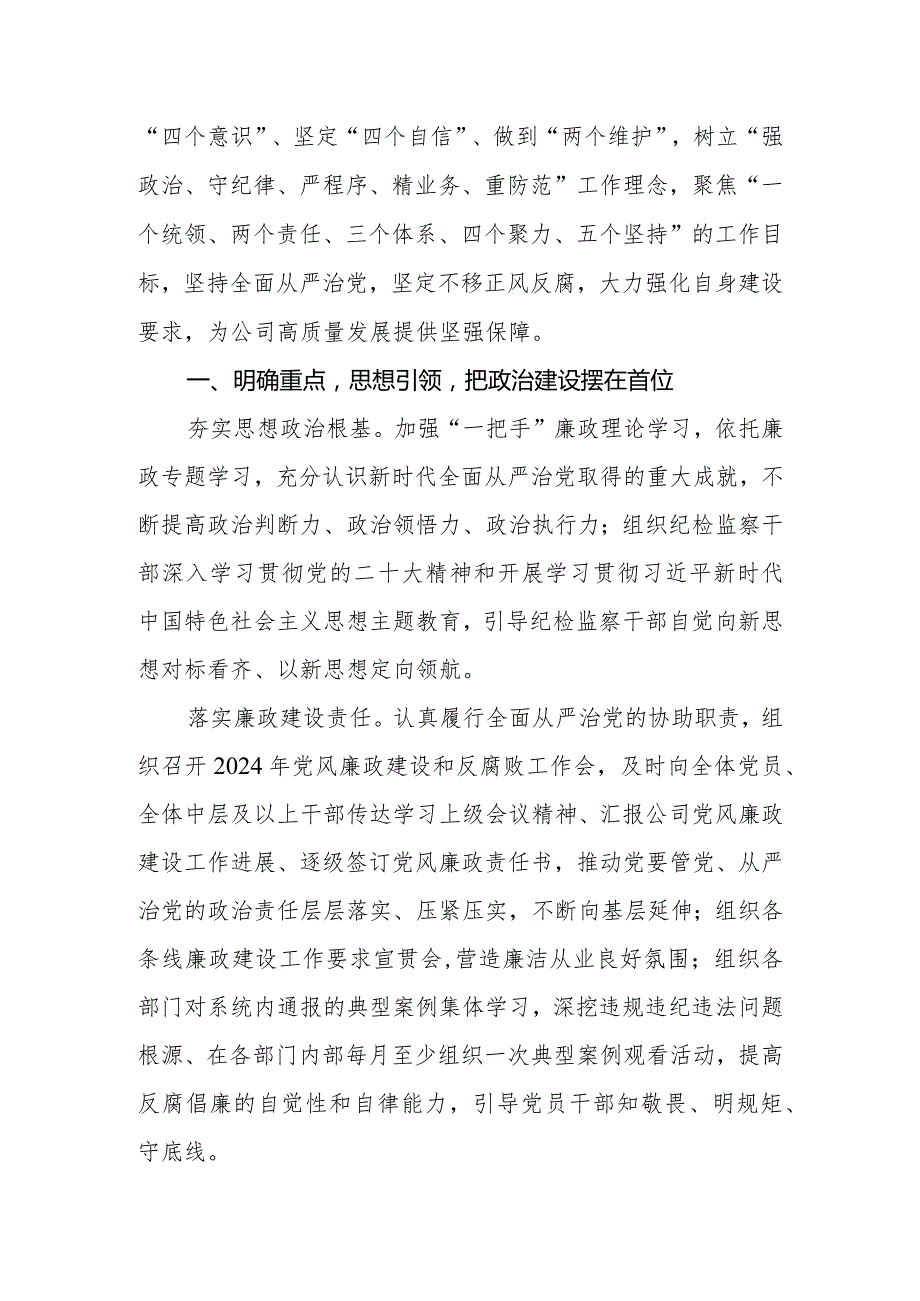 “四个意识”、坚定“四个自信”、做到“两个维护”，树立“强
政治、守纪律、严程序、精业务、重防范”工作理念，聚焦“一
个统领、两个责任、三个体系、四个聚力、五个坚持”的工作目
标，坚持全面从严治党，坚定不移正风反腐，大力强化自身建设
要求，为公司高质量发展提供坚强保障。
一、明确重点，思想引领，把政治建设摆在首位
夯实思想政治根基。加强“一把手”廉政理论学习，依托廉
政专题学习，充分认识新时代全面从严治党取得的重大成就，不
断提高政治判断力、政治领悟力、政治执行力；组织纪检监察干
部深入学习贯彻党的二十大精神和开展学习贯彻习近平新时代
中国特色社会主义思想主题教育，引导纪检监察干部自觉向新思
想对标看齐、以新思想定向领航。
落实廉政建设责任。认真履行全面从严治党的协助职责，组
织召开2024年党风廉政建设和反腐败工作会，及时向全体党员、
全体中层及以上干部传达学习上级会议精神、汇报公司党风廉政
建设工作进展、逐级签订党风廉政责任书，推动党要管党、从严
治党的政治责任层层落实、压紧压实，不断向基层延伸；组织各
条线廉政建设工作要求宣贯会,营造廉洁从业良好氛围；组织各
部门对系统内通报的典型案例集体学习，深挖违规违纪违法问题
根源、在各部门内部每月至少组织一次典型案例观看活动，提高
反腐倡廉的自觉性和自律能力，引导党员干部知敬畏、明规矩、
守底线。